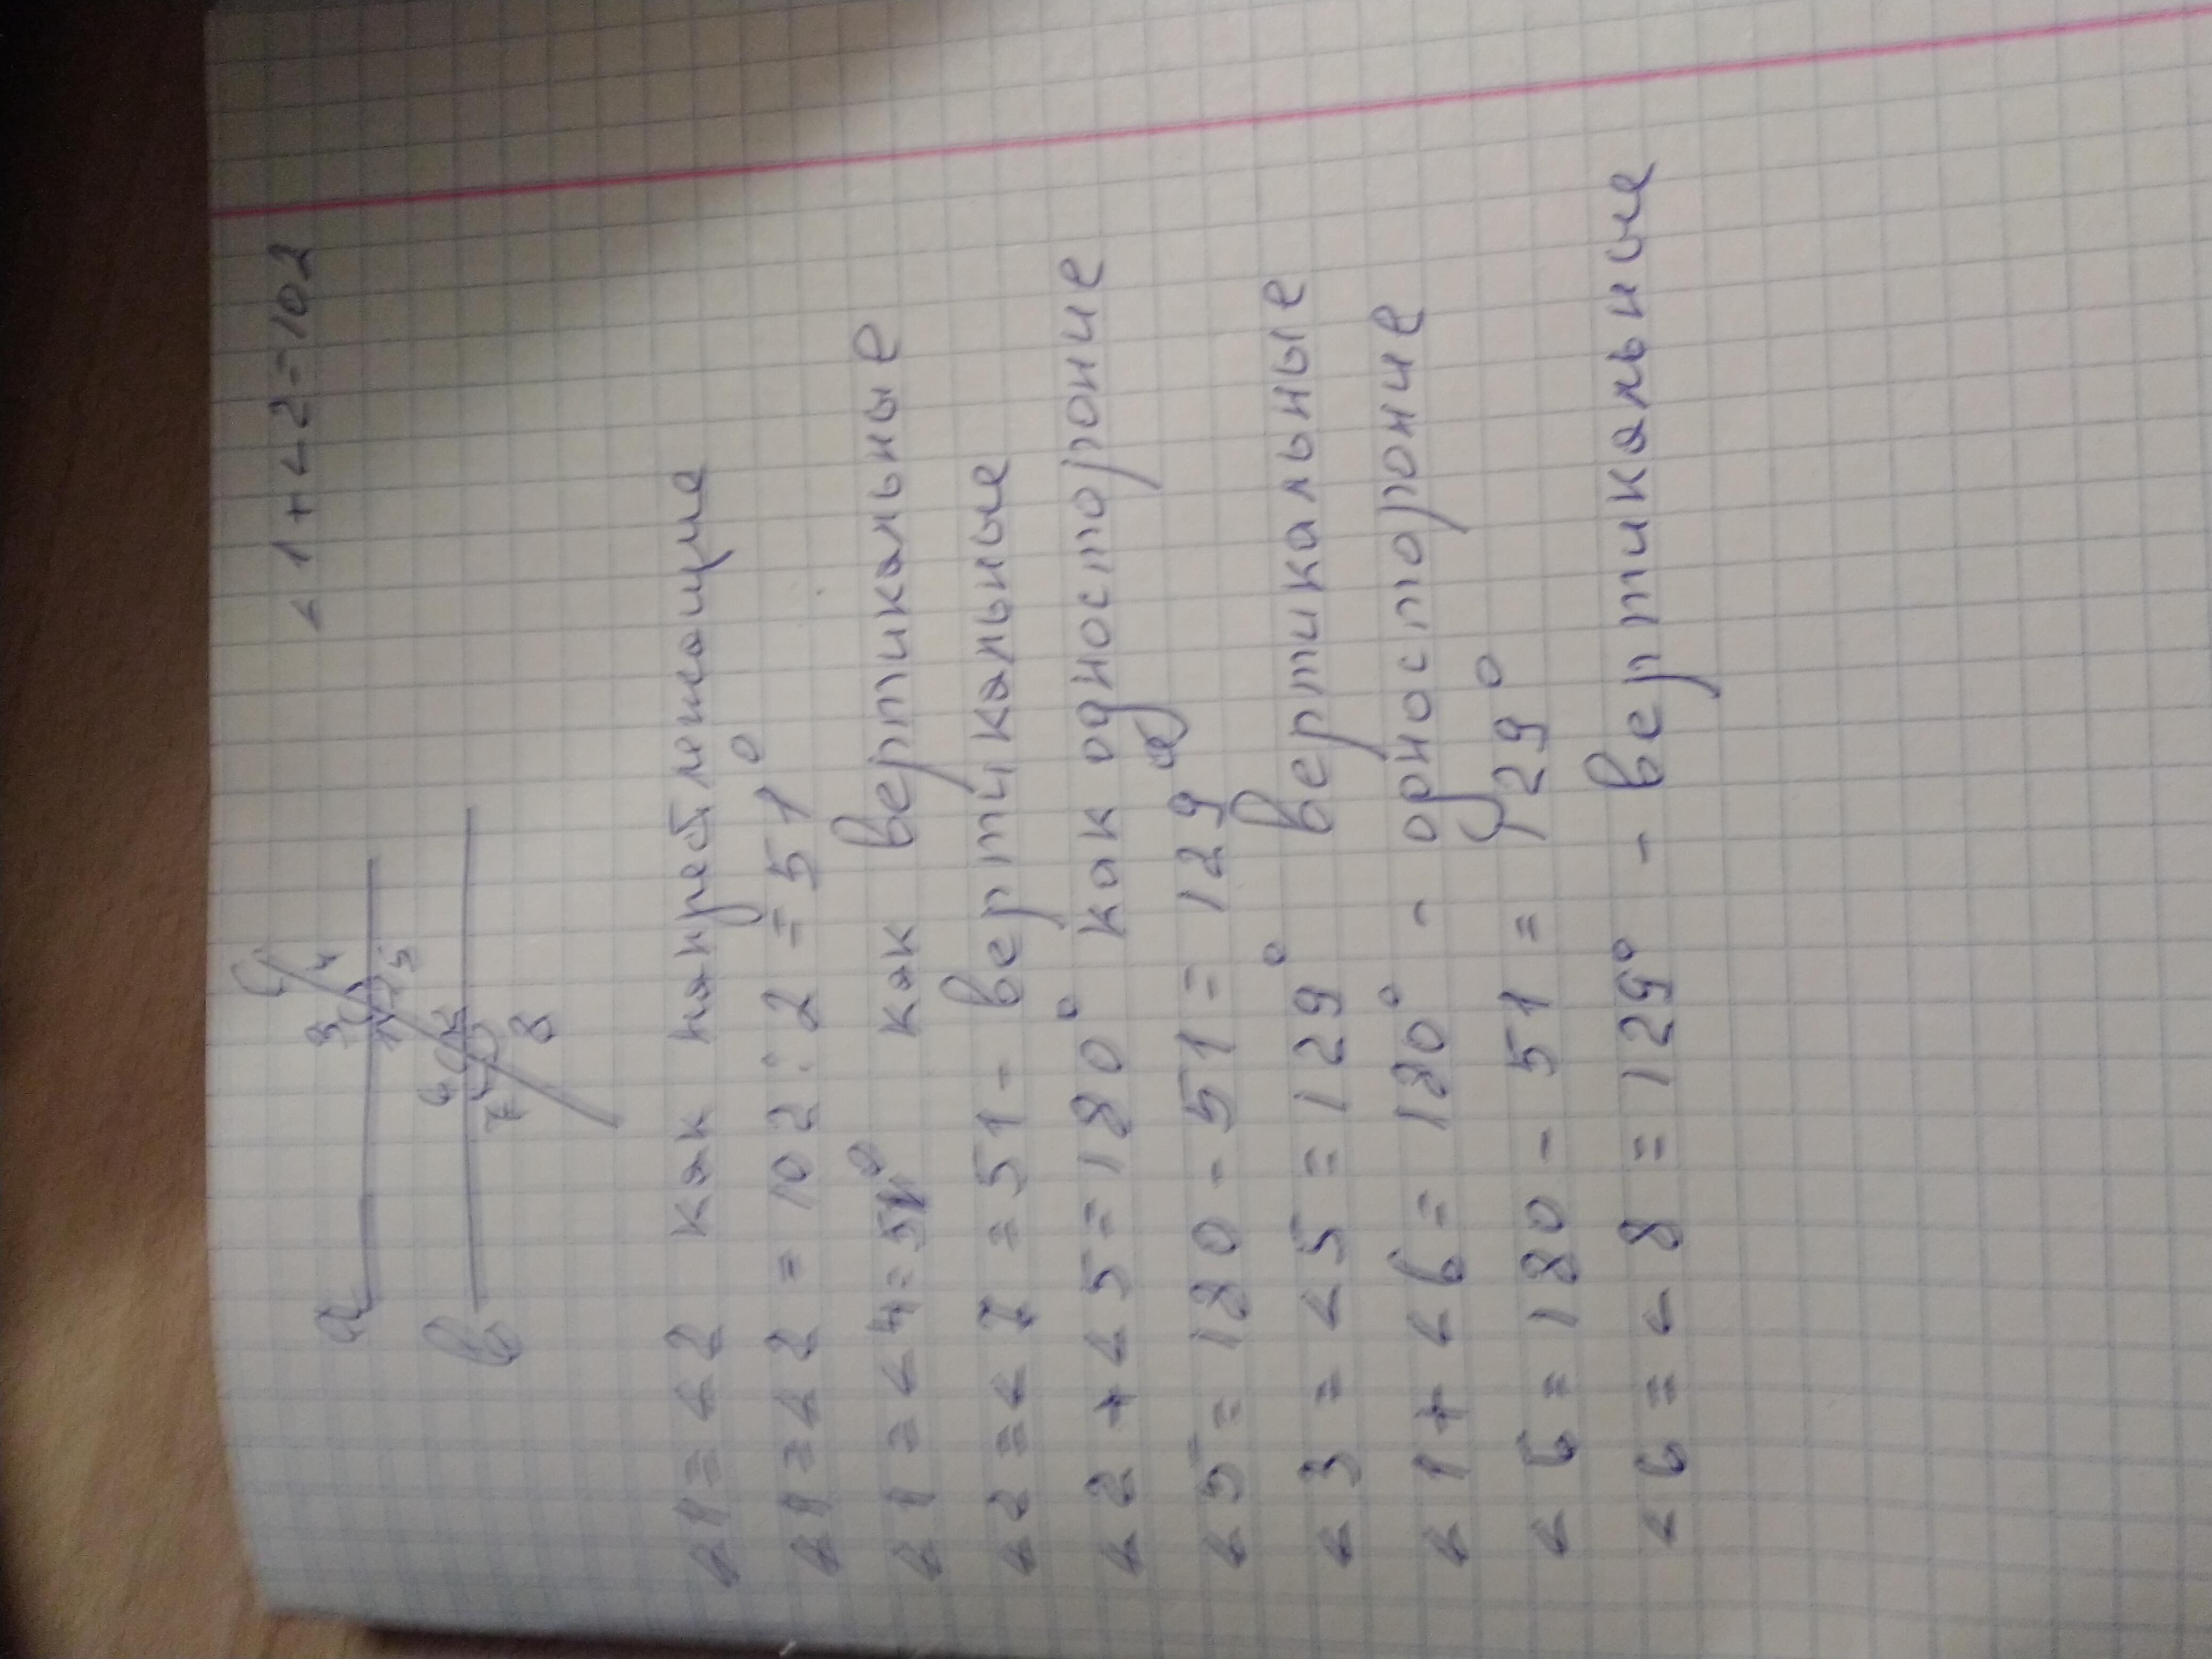 ∠1+∠2=102
c
a 3 4
1 5
в 6 2
7 8
∠1=∠2 как накрестлежащие
∠1=∠2 = 102:2=51°
∠1=∠4=51° как вертикальные
∠2=∠7=51- вертикальные
∠2+∠5=180° как одностороние
∠5=180-51=129°
∠3=∠5=129° вертикальные
∠1+∠6=180° - одностороние
∠6=180-51=129°
∠6=∠8=129° - вертикальные